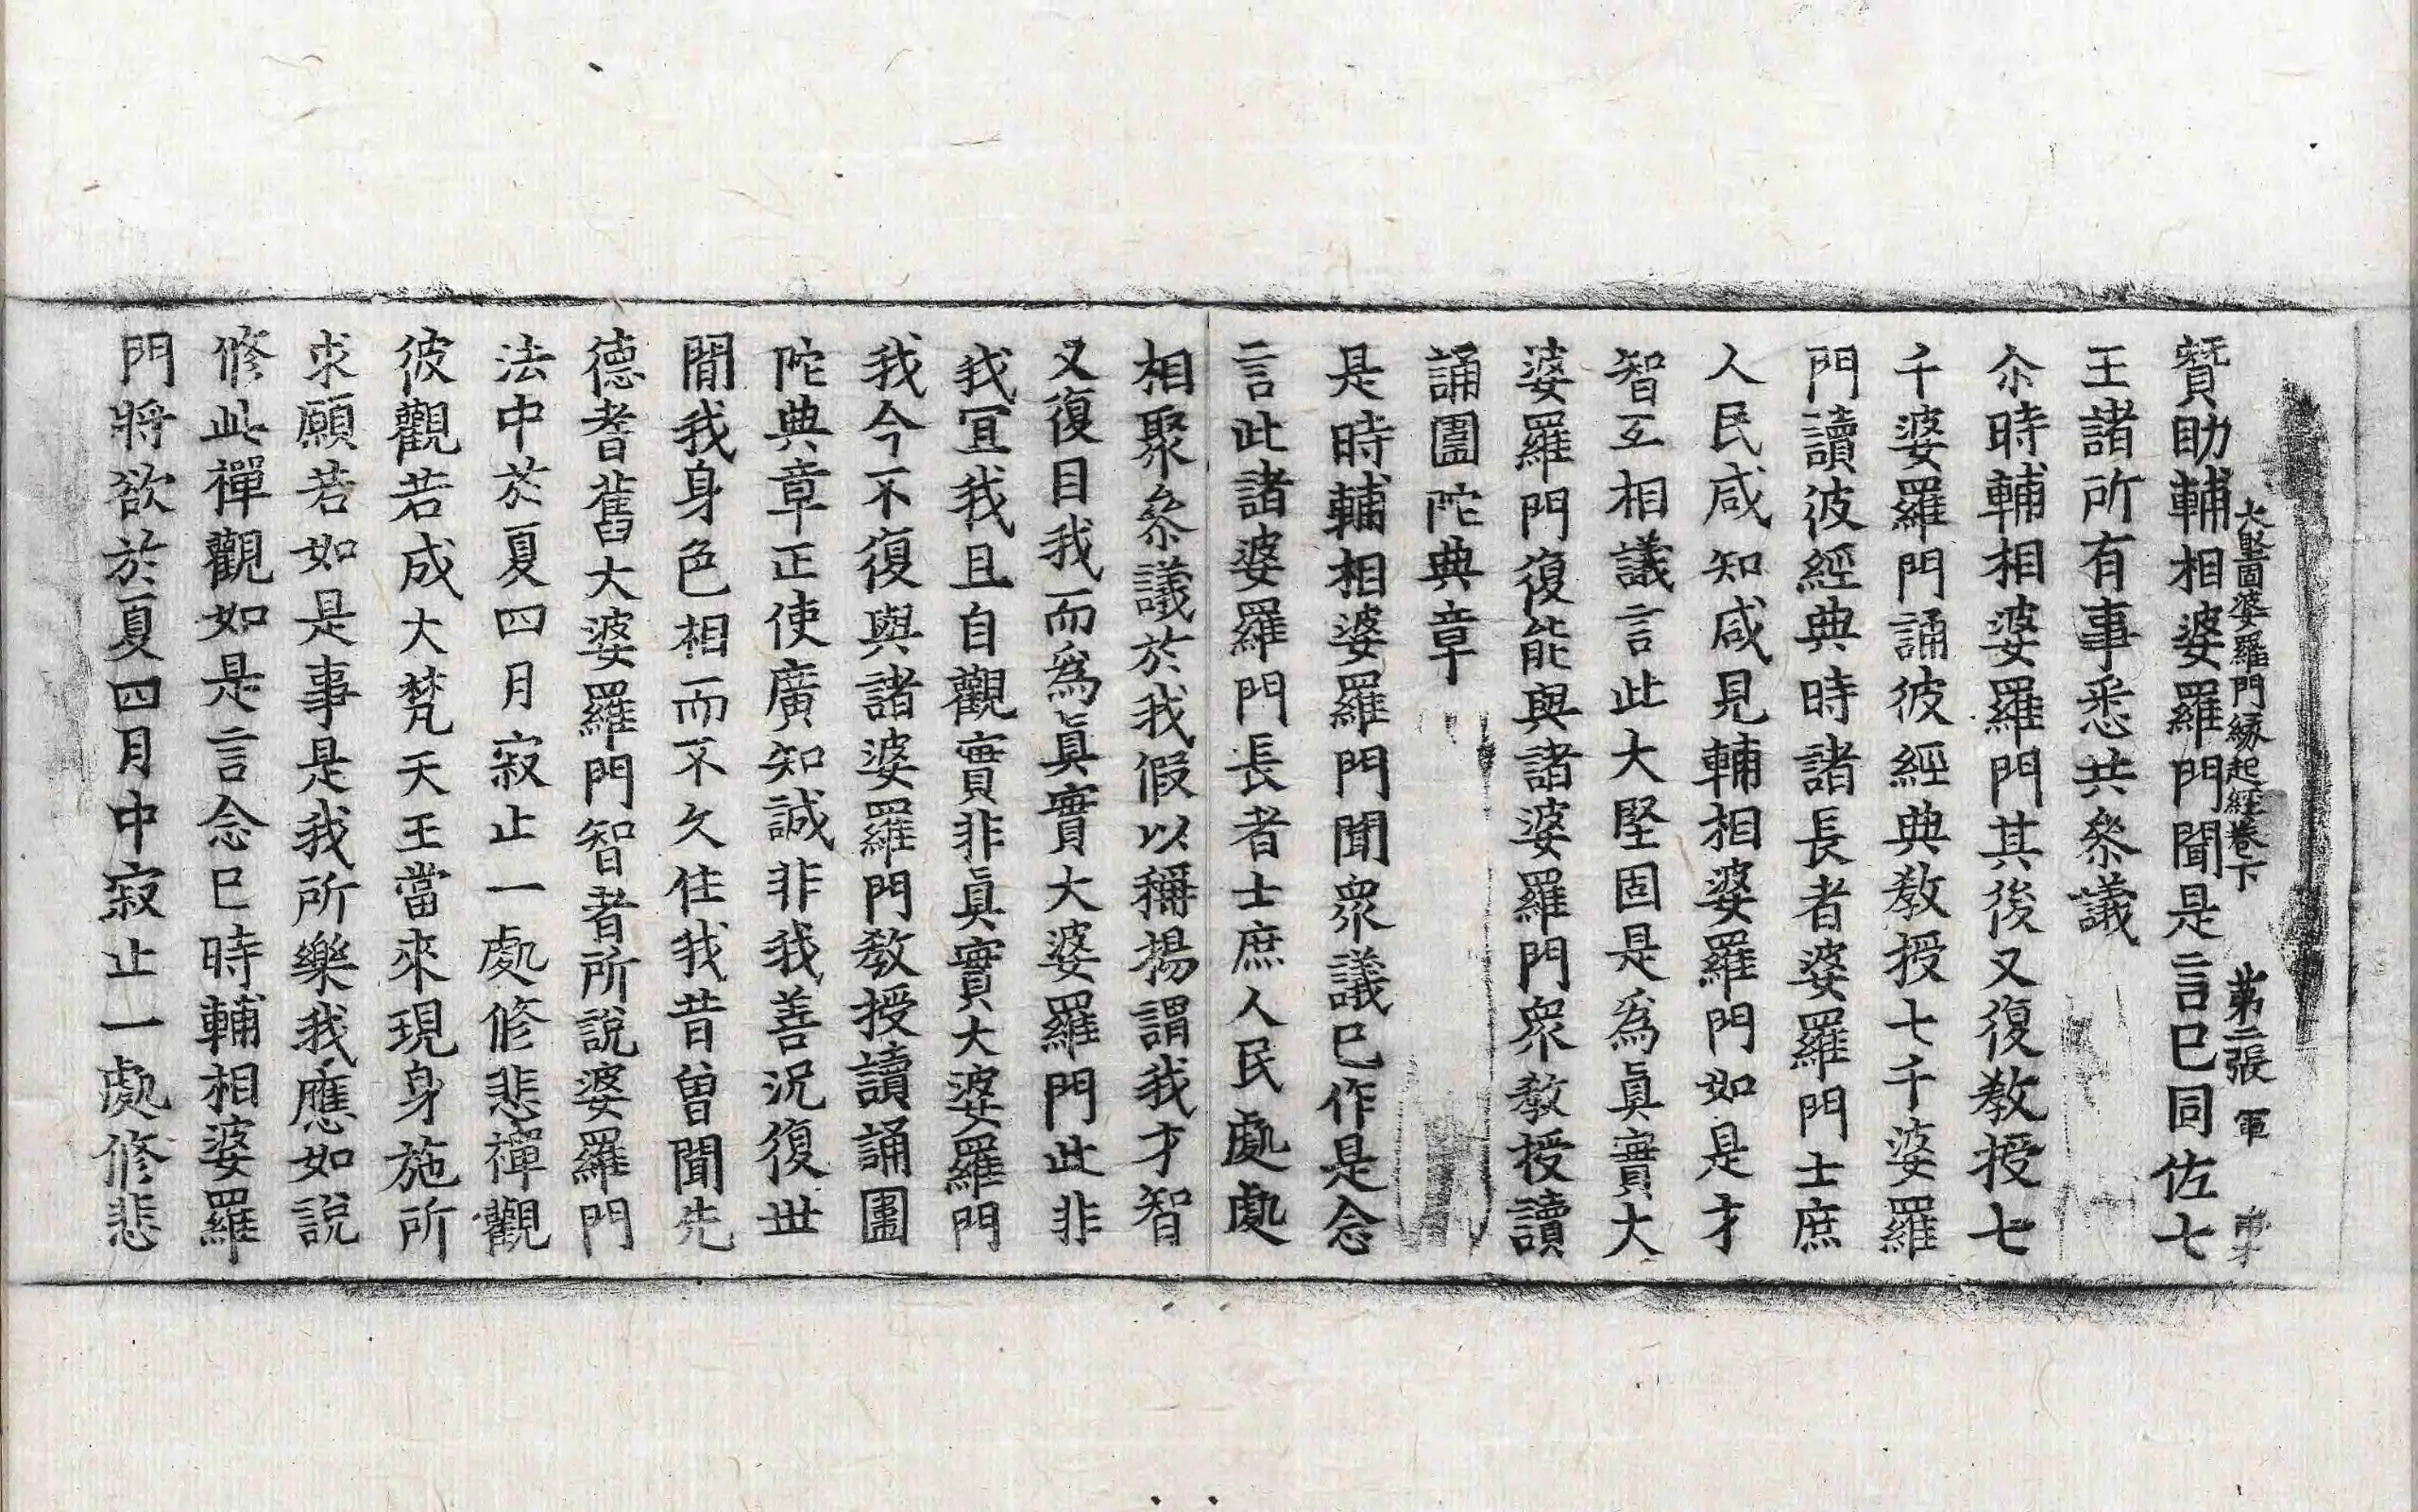 大堅固婆羅門緣起經卷下 第二張 軍
賛助輔相婆羅門聞是言已同佐七
王諸所有事悉共叅議
尒時輔相婆羅門其後又復教授七
千婆羅門誦彼經典教授七千婆羅
門讀彼經典時諸長者婆羅門士庶
人民咸知咸見輔相婆羅門如是才
智互相議言此大堅固是爲眞實大
婆羅門復能與諸婆羅門衆教授讀
誦圍陀典章
是時輔相婆羅門聞衆議已作是念
言此諸婆羅門長者士庶人民處處
相聚叅議於我假以稱揚謂我才智
又復目我而爲眞實大婆羅門此非
我冝我且自觀實非眞實大婆羅門
我今不復與諸婆羅門教授讀誦圍
陀典章正使廣知誠非我善況復世
閒我身色相而不久住我昔曽聞先
德耆舊大婆羅門智者所說婆羅門
法中於夏四月寂止一處修悲禪觀
彼觀若成大梵天王當來現身施所
求願若如是事是我所樂我應如說
修此禪觀如是言念已時輔相婆羅
門將欲於夏四月中寂止一處修悲